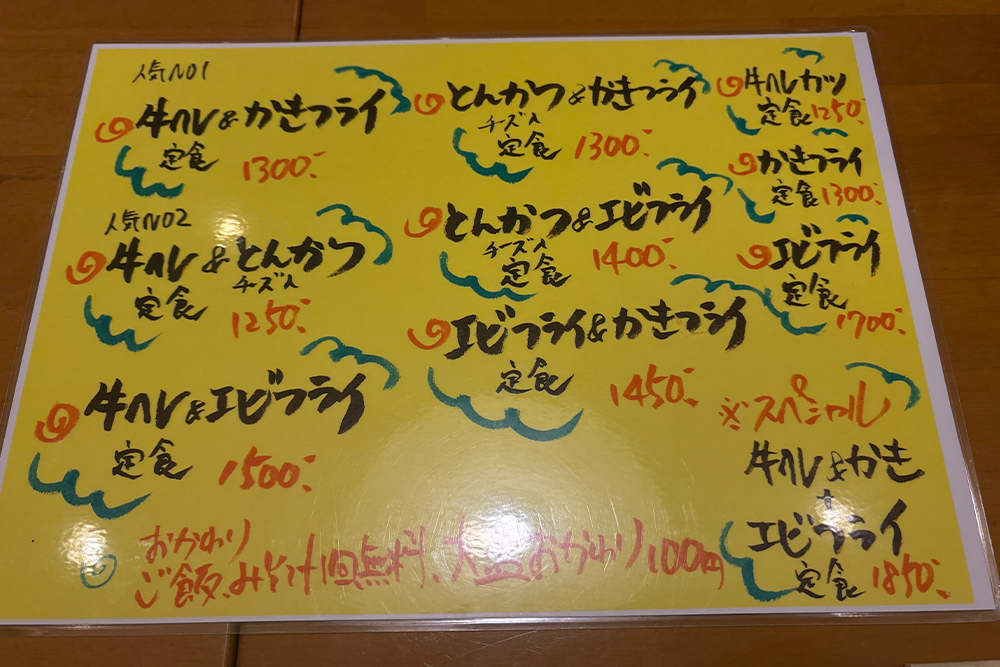 人気NO1
牛ヘレ&かきフライ
定食 1300.-
人気NO2
牛ヘレ&とんかつ
チーズ入
定食 1250.-
牛ヘレ&エビフライ
定食 1500.-
とんかつ&かきフライ
チーズ入
定食 1300.-
とんかつ&エビフライ
チーズ入
定食 1400.-
エビフライ&かきフライ
定食 1450.-
牛ヘレカツ
定食 1250.-
かきフライ
定食 1300.-
エビフライ
定食 1700.-
※スペシャル
牛ヘレ&かき
&
エビフライ
定食 1850.-
おかわり
ご飯、みそ汁1回無料、大盛おかわり100円